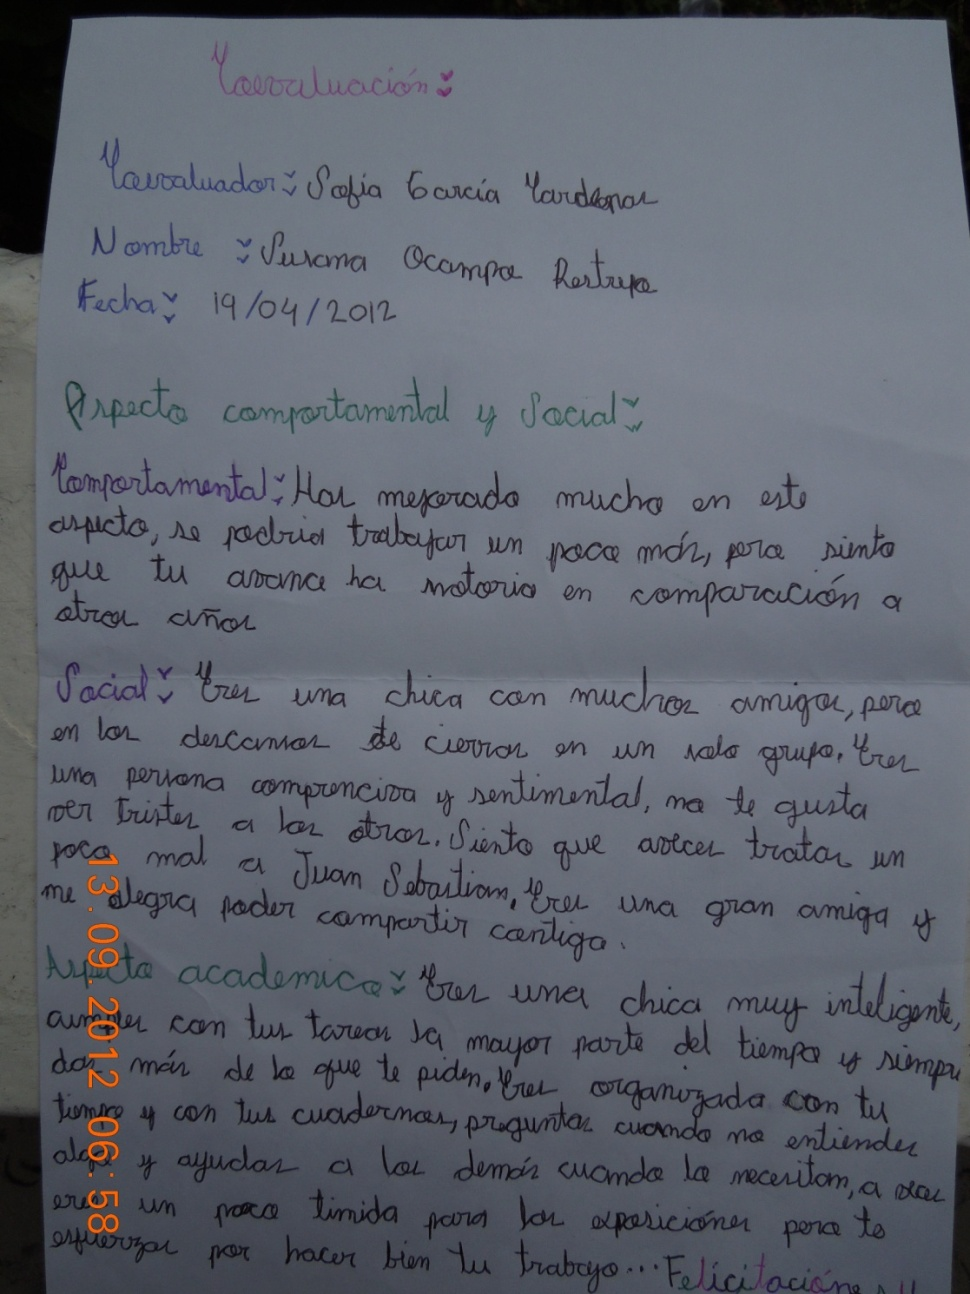 Coevaluación:
Coevaluador: Sofia García Cardenas
Nombre : Susana Ocampo Restrepo
Fecha: 19/04/2012
Aspecto comportamental y Social:
Comportamental: Has mejorado mucho en este
aspecto, se podria trabajar un poco más, pero siento
que tu avance ha notorio en comparación a
otros años
Social: Eres una chica con muchos amigos, pero
en los descansos te cierras en un solo grupo. Eres
una persona comprenciva y sentimental, no te gusta
ver tristes a los otros. Siento que aveces tratas un
poco mal a Juan Sebastian, Eres una gran amiga y
me alegra poder compartir contigo.
Aspecto academico: Eres una chica muy inteligente,
cumples con tus tareas la mayor parte del tiempo y siempre
das más de lo que te piden. Eres organizada con tu
tiempo y con tus cuadernos, preguntas cuando no entiendes
algo y ayudas a los demás cuando lo necesitan, a veces
eres un poco timida para las exposiciónes pero te
esfuerzas por hacer bien tu trabajo... Felicitaciónes
13.09.2012 06:58